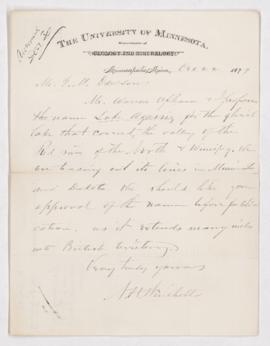 THE UNIVERSITY OF MINNESOTA.
GEOLOGY AND MINERALOGY.
Minneapolis, Minn., Dec 22 1879
Mr. Warren Upham & I propose
the name Lake Agassiz for the glacial
lake that covered the valley of the
Red river of the North & Winnipeg. We
are tracing out its lines in Minnesota
and Dakota. We should like your
approval of the name before publi-
cation, as it extends many miles
into British territory.
Very truly yours
N H Winchell